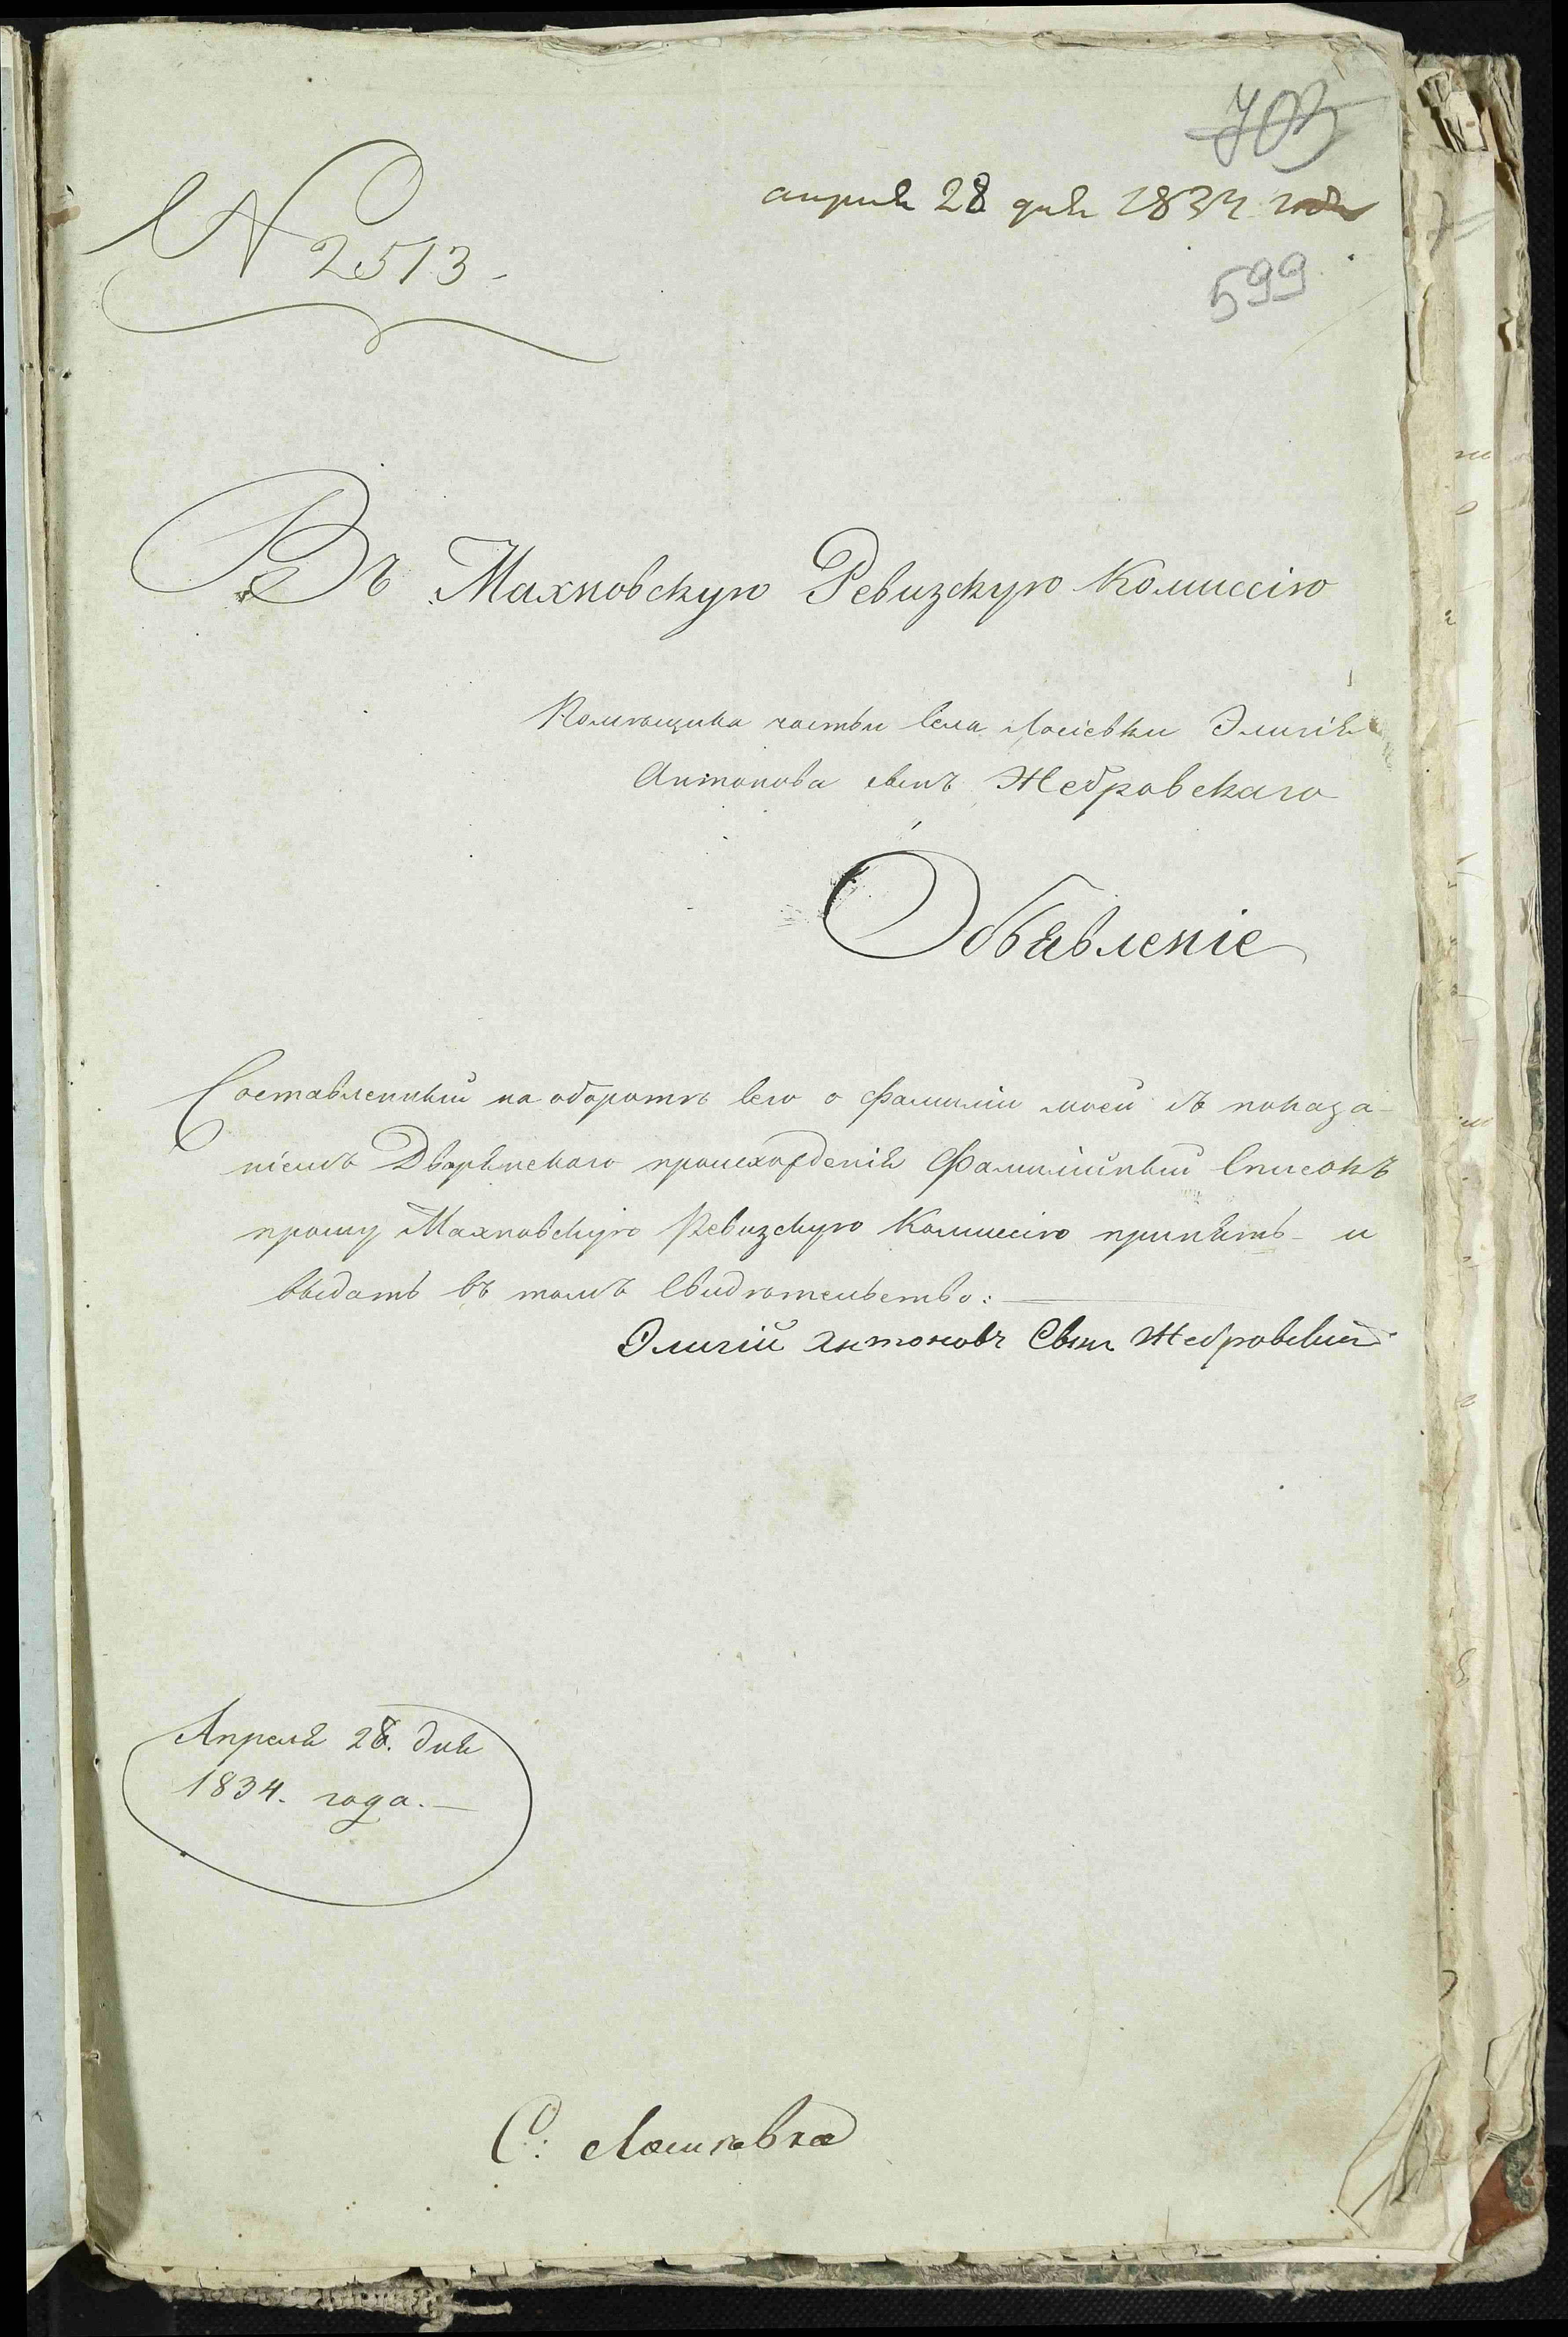 703
априля 28 дня 1834 года
N 2513.
599
Въ Махновскую Ревизскую Комиссію
Помѣщика части села Лосіевки Элигія
Антонова сына Жебровскаго
Объявленіе
Составленный на оборотѣ сего о фамиліи моей съ показа-
ніемъ Дворянскаго происхожденія Фамилійный Списокъ
прошу Махновскую Ревизскую Комиссію принять и
выдать въ томъ Свидѣтельство:
Элигій Антоновъ Сынъ Жебровскій
Апреля 28. дня
1834. года.
С: Лосиевка